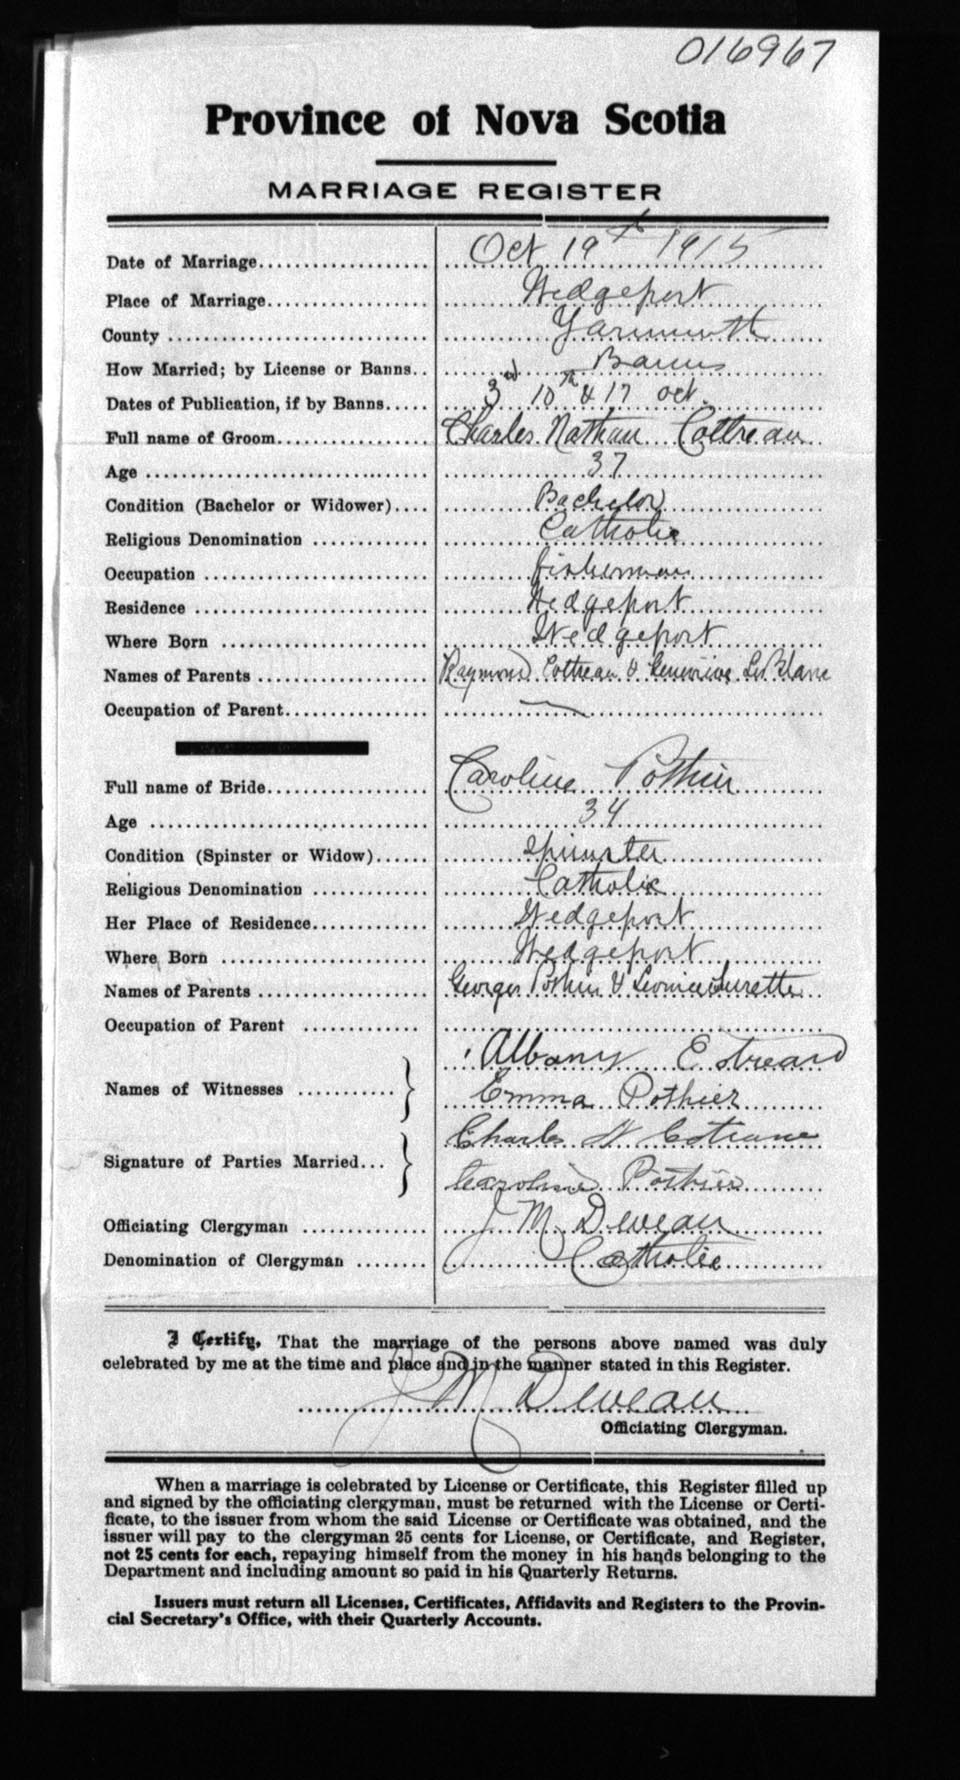 016967
Province of Nova Scotia
MARRIAGE REGISTER
Date of Marriage Oct 19th 1915
Place of Marriage Wedgeport
County Yarmouth
How Married; by License or Banns Banns
Dates of Publication, if by Banns 3rd 10th & 17 oct.
Full name of Groom Charles Nathan Cottreau
Age 37
Condition (Bachelor or Widower) Bachelor
Religious Denomination Catholic
Occupation fisherman
Residence Wedgeport
Where Born Wedgeport
Names of Parents Raymond Cottreau & Genevieve LeBlanc
Occupation of Parent
Full name of Bride Caroline Pothier
Age 34
Condition (Spinster or Widow) Spinster
Religious Denomination Catholic
Her Place of Residence Wedgeport
Where Born Wedgeport
Names of Parents Georges Pothier & Surette
Occupation of Parent
Albany
Names of Witnesses
Emma Pothier
Charles
Signature of Parties Married
Caroline Pothier
Officiating Clergyman J M Deveau
Denomination of Clergyman Catholic
I Certify, That the marriage of the persons above named was duly
celebrated by me at the time and place and in the manner stated in this Register.
J M Deveau
Officiating Clergyman.
When a marriage is celebrated by License or Certificate, this Register filled up
and signed by the officiating clergyman, must be returned with the License or Certi-
ficate, to the issuer from whom the said License or Certificate was obtained, and the
issuer will pay to the clergyman 25 cents for License, or Certificate, and Register,
not 25 cents for each, repaying himself from the money in his hands belonging to the
Department and including amount so paid in his Quarterly Returns.
Issuers must return all Licenses, Certificates, Affidavits and Registers to the Provin-
cial Secretary's Office, with their Quarterly Accounts.